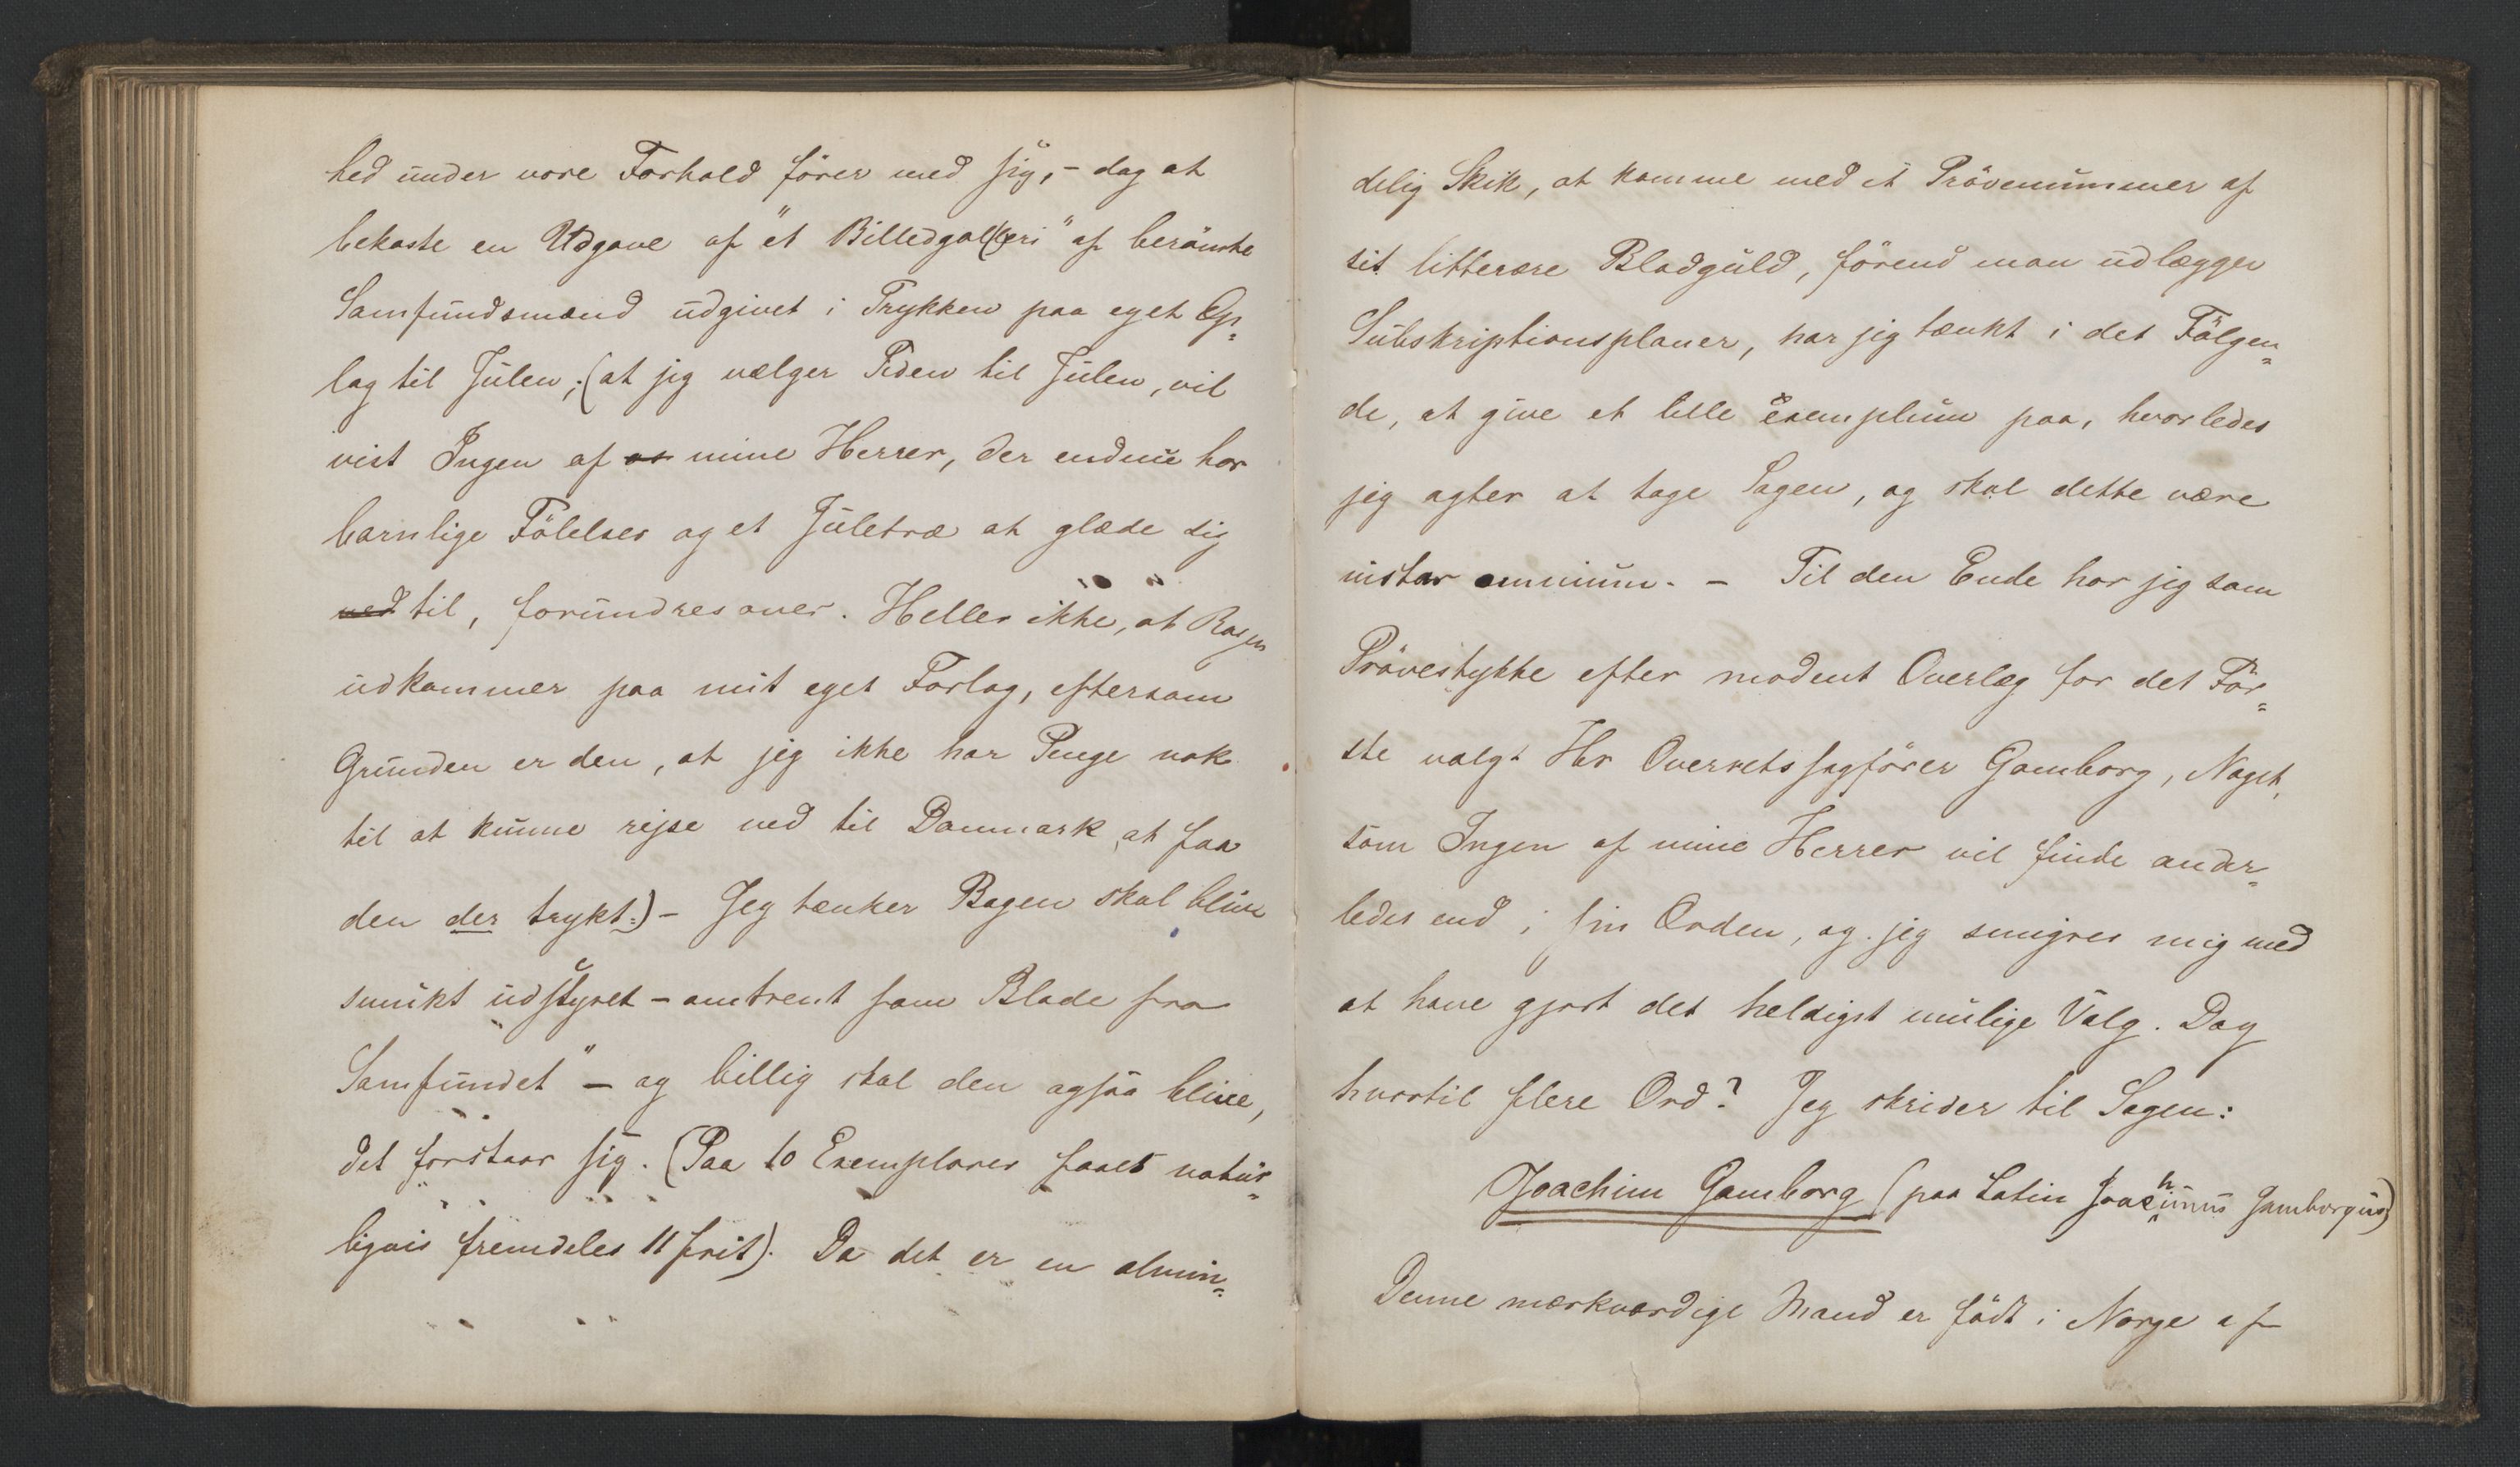 hed under vore Forhold fører med sig, - dog at
bekoste en Udgave af "et Billedgalleri" af berömte
Samfundsmænd udgivet i Trykken paa eget Op=
lag til Julen; (at jeg vælger Tiden til Julen, vil
vist Ingen af os mine Herrer, der endnu har
barnlige Fölelser og et Juletræ at glæde sig
ved til, forundres over. Heller ikke, at Bogen
udkommer paa mit eget Forlag, eftersom
Grunden er den, at jeg ikke har Penge nok
til at kunne rejse ned til Danmark at faa
den der trykt:) - Jeg tænker Bogen skal blive
smukt udstyret - omtrent som Blade fra
Samfundet" - og billig skal den ogsaa blive,
det forstaar sig. (Paa 10 Exemplarer faaes natur=
ligvis fremdeles 11 frit). Da det er en almin=
delig Skik, at komme med et Prövenummer af
sit litterære Bladguld, förend man udlægger
Subskriptionsplaner, har jeg tænkt i det Fölgen=
de, at give et lille exemplum paa, hvorledes
jeg agter at tage Sagen, og skal dette være
instar omnium. - Til den Ende har jeg som
Prövestykke efter modent Overlæg for det För=
ste valgt Hr Overretssagförer Gamborg, Noget,
som Ingen af mine Herrer vil finde ander=
ledes end i sin Orden, og jeg smigrer mig med
at have gjort det heldigst mulige Valg. Dog
hvortil flere Ord? Jeg skrider til Sagen:
Joachim Gamborg (paa Latin Joachimus Gamborgius)
Denne mærkværdige Mand er födt i Norge af